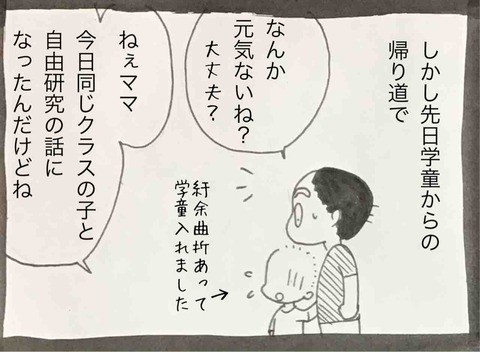 しかし先日学童からの
帰り道で
なんか
元気ないね？
大丈夫？
紆余曲折あって
学童入れました
ねぇママ
今日同じクラスの子と
自由研究の話に
なったんだけどね